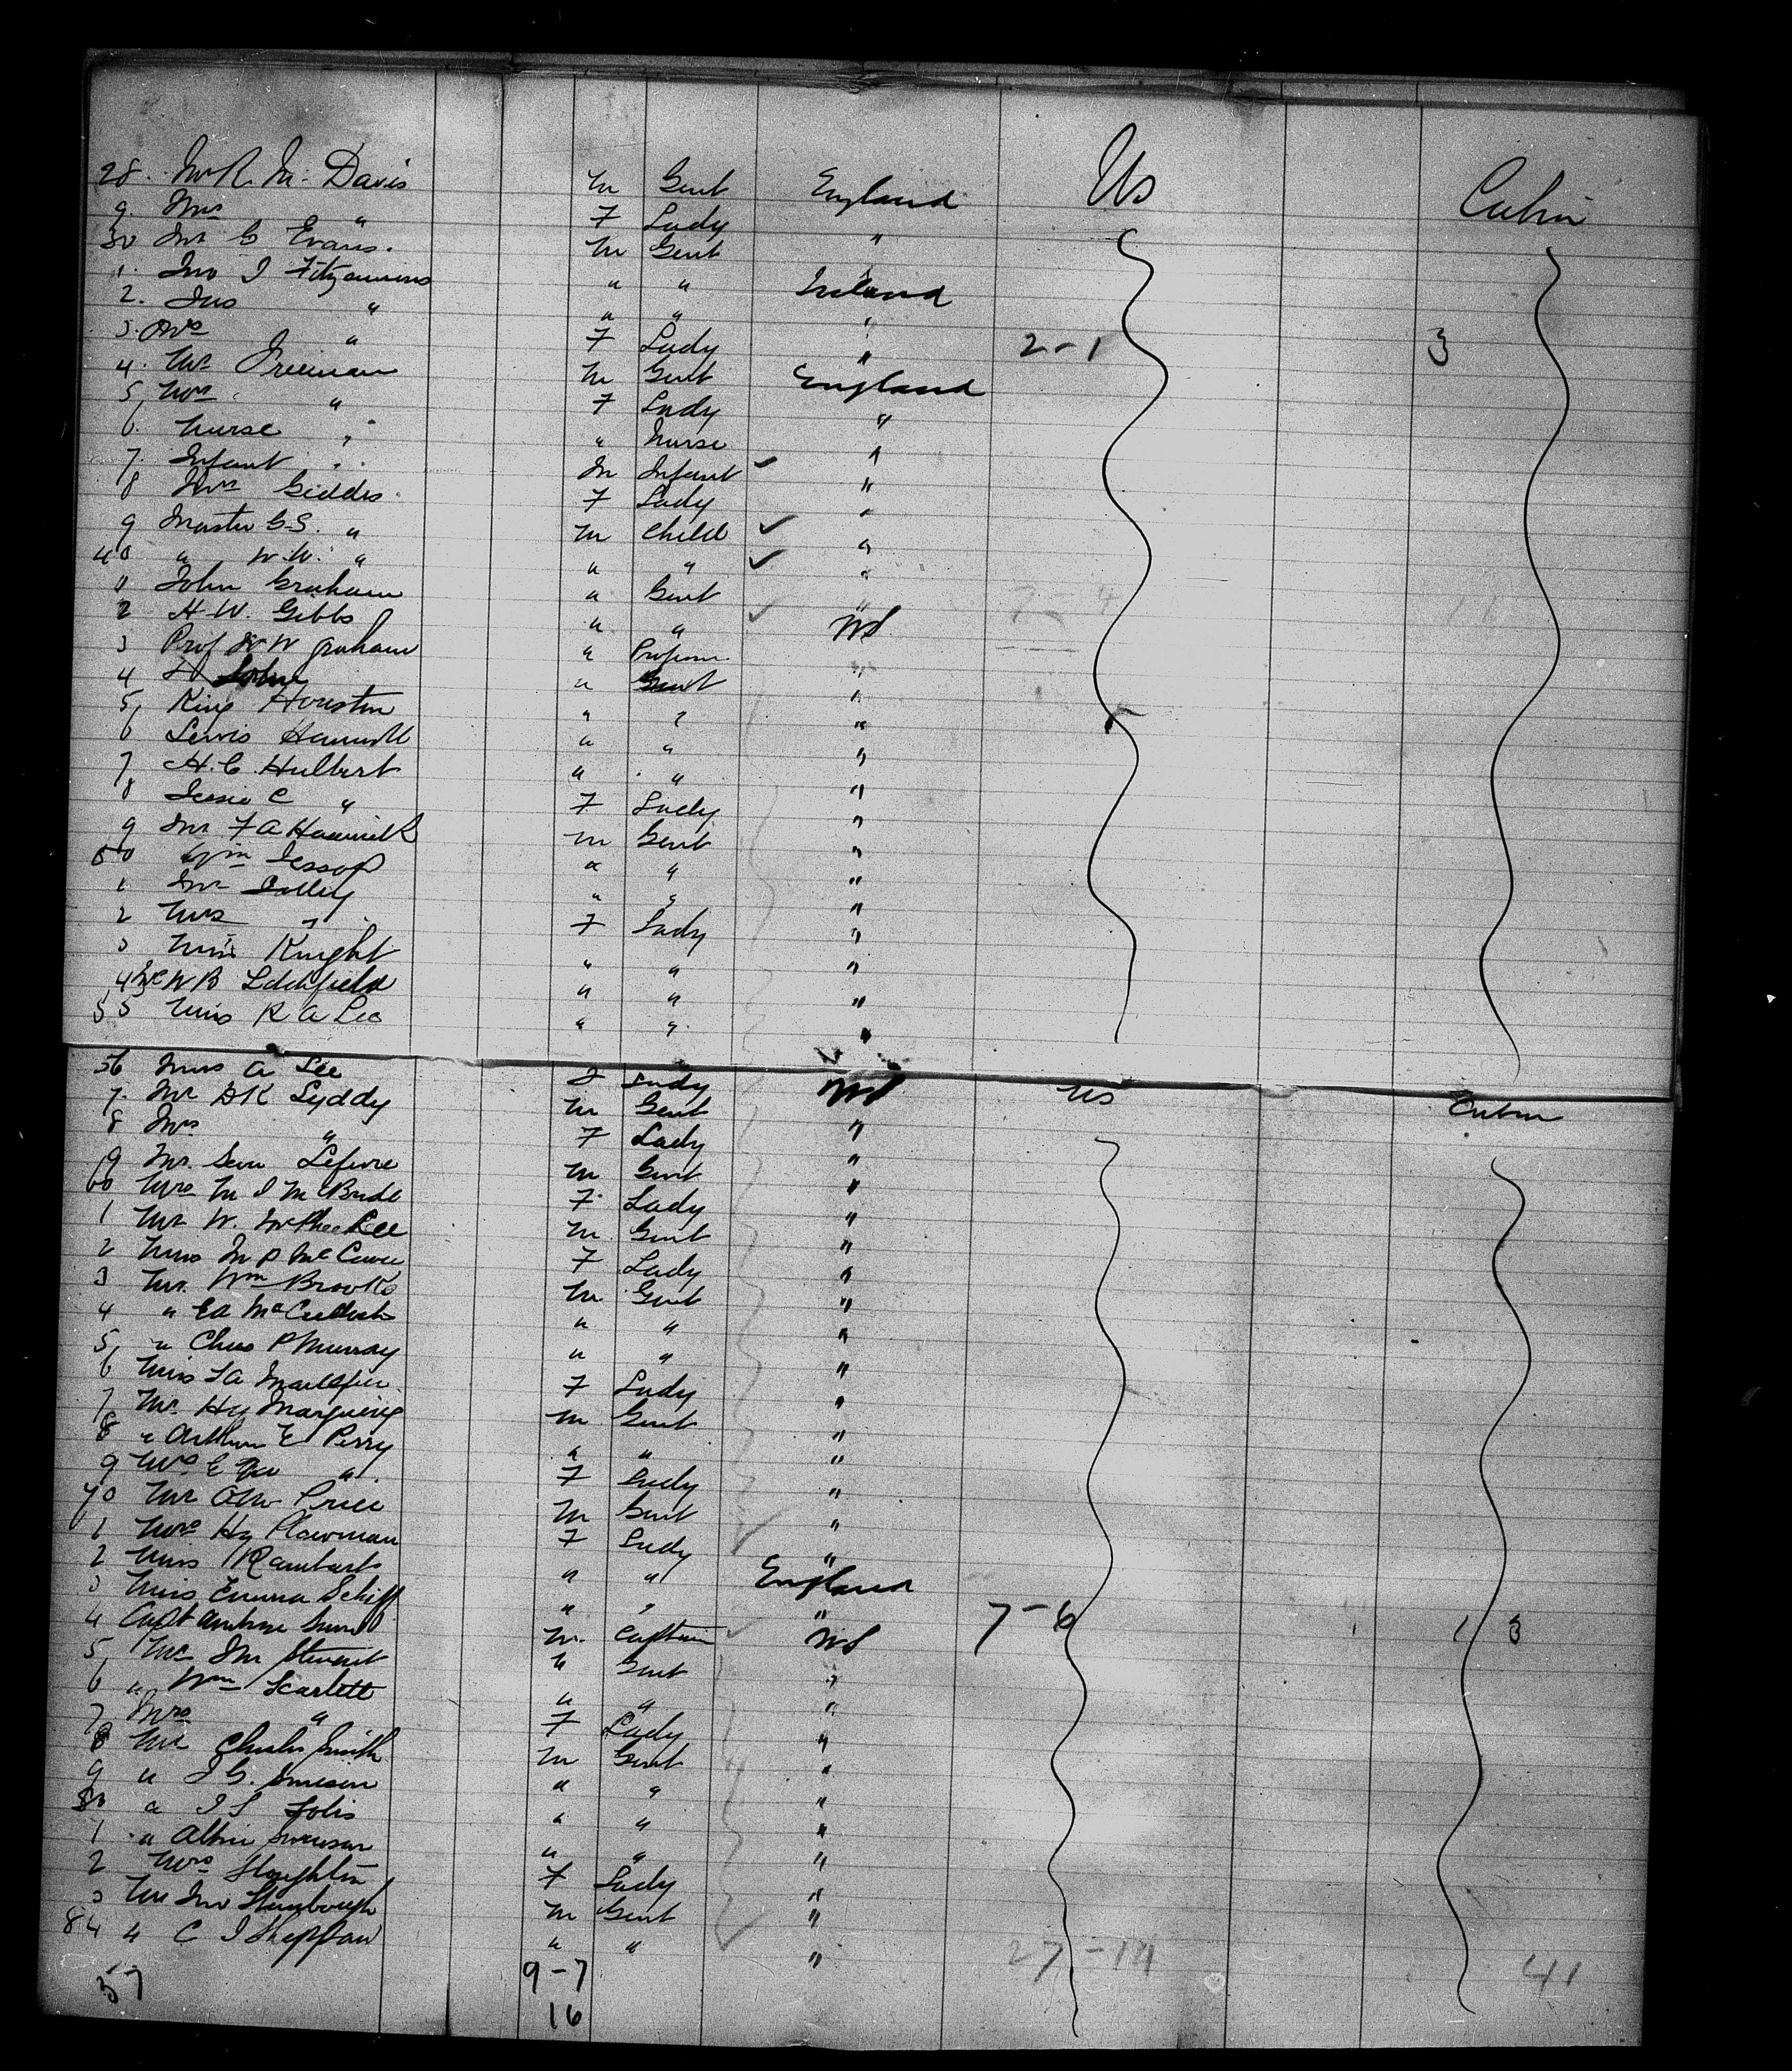 28. Mr R. M. Davis M Gent England Us Cabin
9. Mrs " F Lady "
30 Mr G Evans. M Gent
1. Jno J Fitzammons " " Ireland
2. Jno " " " "
3. Mrs " F Lady " 2-1 3
4. Mr Freeman M Gent England
5, Mrs " F Lady "
6. Nurse " " Nurse "
7. Infant " M Infant "
8 Mrs Geddes F Lady "
9 Master G.S. " M Child "
40 " W.W. " " " "
1 John Graham " Gent "
2 H.W. Gibbs " " US
3 Prof W W Graham " Professor "
4 " Gent "
5, King Houston " " "
6 Lewis " " "
7, H.C. Hulbert " " "
8 Jessie C " F Lady "
9 Mr F A M Gent "
50 Wm Jessop " " "
1 Mr Jolley " " "
2 Mrs " F Lady "
3 Miss Knight " " "
4 W B Litchfield " " "
55 Miss R A Lee " " "
56 Miss A Lee F Lady US Us Cabin
7. Mr D K Lyddy M Gent "
8 Mrs " F Lady "
9 Mr. Lefevre M Gent "
60 Mrs M J McBride F Lady "
1 Mr W. M Gent "
2 Miss M P McCune F Lady "
3 Mr. Wm Brooks M Gent "
4 " Ed " " "
5, " Chas P Murray " " "
6 Miss F A F Lady "
7, Mr. Hy M Gent "
8 " Arthur E Perry " " "
9 Mrs E " F Lady "
70 Mr Price M Gent "
1 Mrs Hy Plowman F Lady "
2 Miss " " England
3 Miss Emma Schiff " " " 7-6 1 3
4 Capt M. Captain US
5, Mr Jno Stewart " Gent "
6 " Wm Scarlett " " "
7, Mrs " F Lady "
8 Mr Charles Smith M Gent "
9 " J G. " " "
80 " J S Solis " " "
1 " Albin Swenson " " "
2 Mrs Stoughton F Lady "
3 Mr Jno M Gent "
84 " C J " " " 27-14 41
57 9-7
16